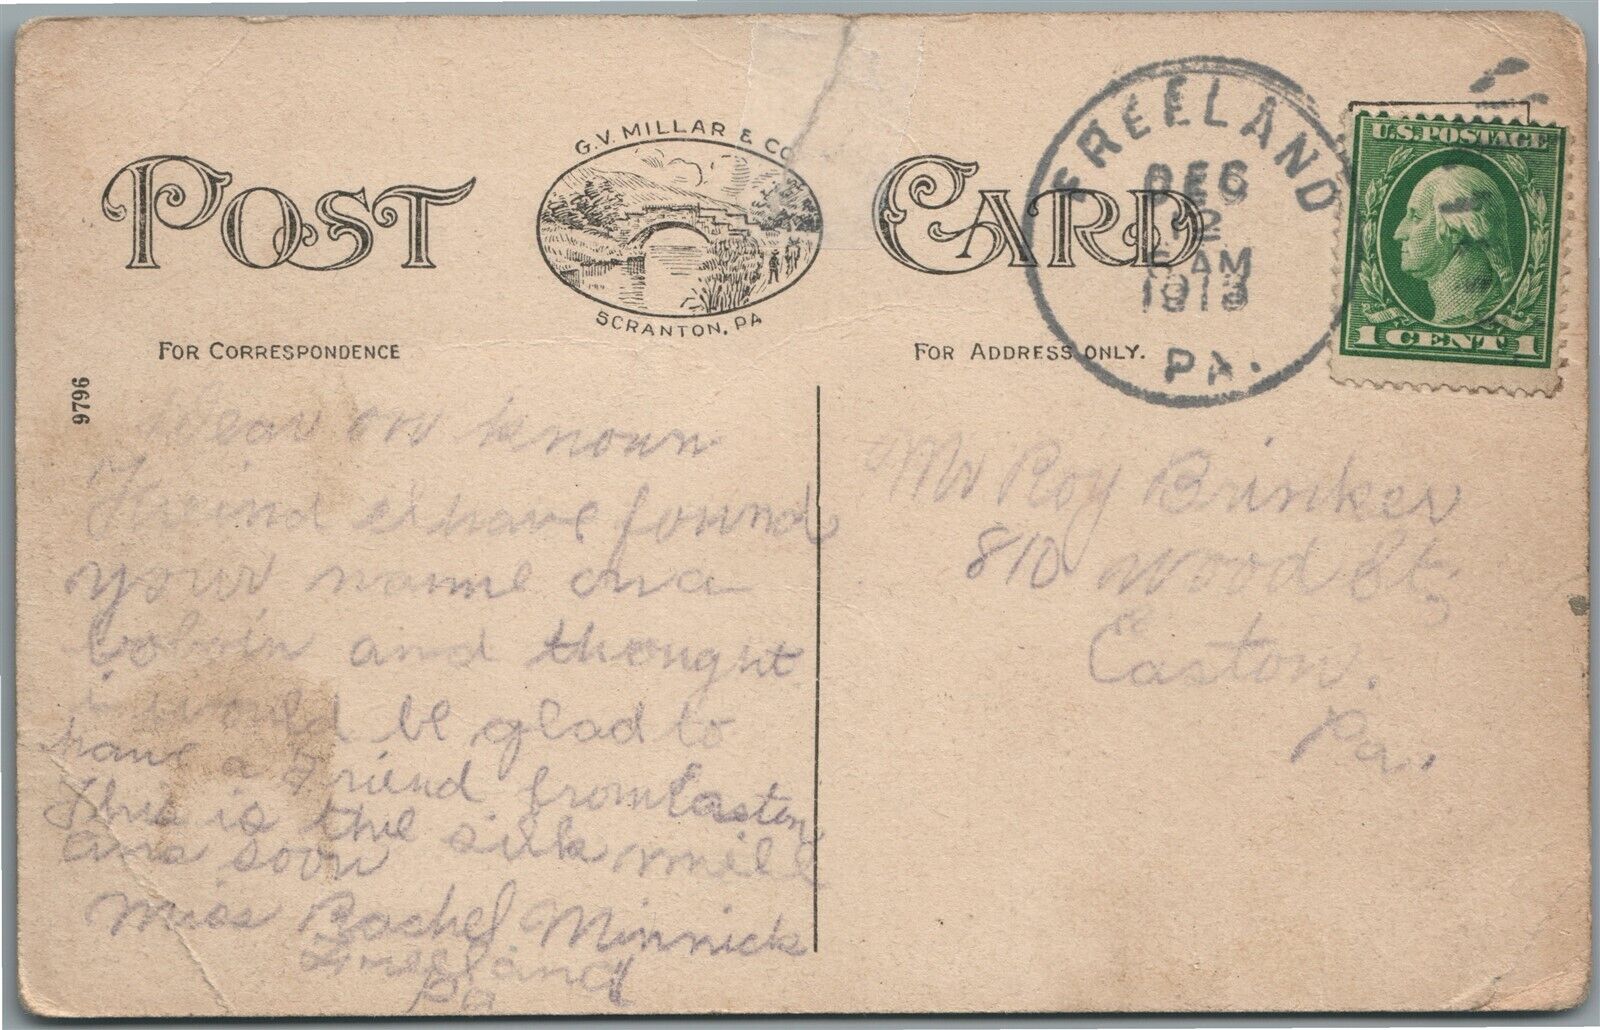 POST CARD
G.V. MILLAR & CO.
SCRANTON, PA
FOR CORRESPONDENCE
FOR ADDRESS ONLY.
9796
FREELAND
DEC
2
AM
1913
PA.
U.S. POSTAGE
1 CENT 1
Dear on known
Freind I have found
your name on a
bobin and thought
i would be glad to
have a Friend from Easton
This is the silk mill
ans soon
Miss Rachel Minnick
Freeland
Pa
Mr Roy Brinker
810 Wood St,
Easton.
Pa.